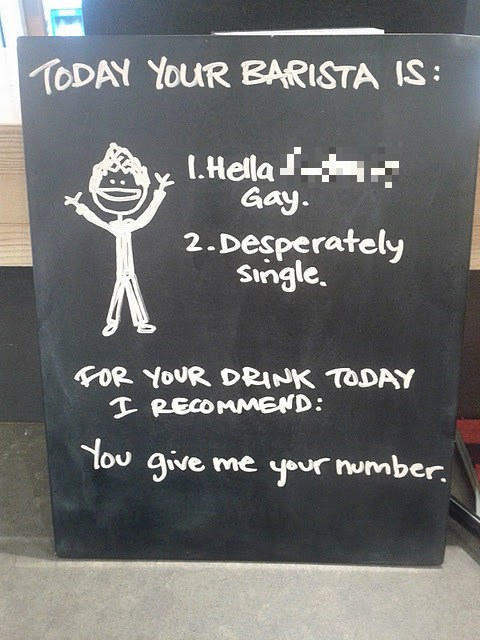 TODAY YOUR BARISTA IS:
1. Hella
Gay.
2. Desperately
single.
FOR YOUR DRINK TODAY
I RECOMMEND:
You give me your number.